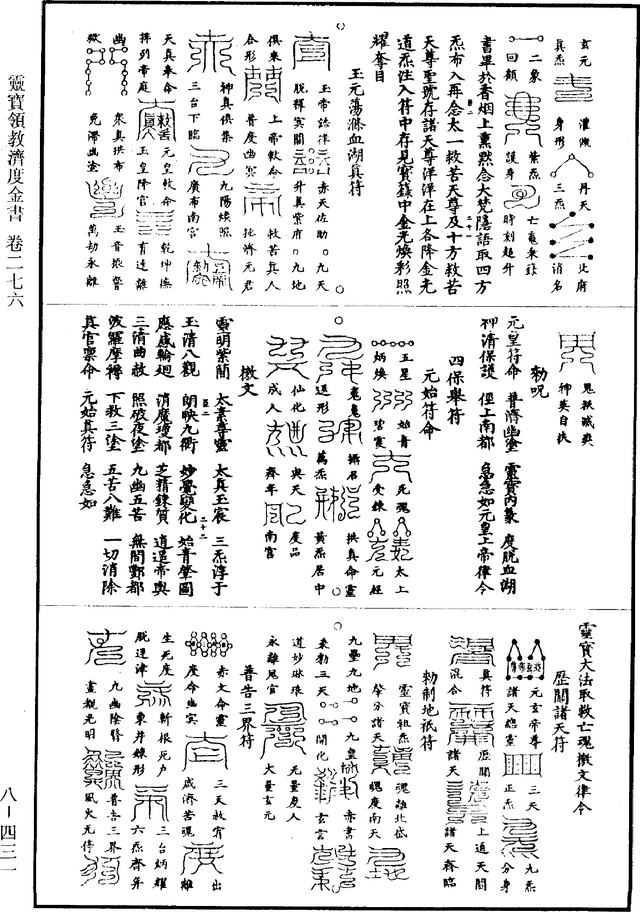 靈寶領教濟度金書 卷二七六
八-四三一
玄元
真炁
灌溉
身形
丹天
三炁
北府
消名
二象
回顏
紫炁
護身
時刻超升
書畢於香烟上熏黙念大梵隱語取四方
炁布入再念太一救苦天尊及十方救苦
天尊聖號存諸天尊洋洋在上各降金光
道炁注入符中存見寶籙中金光煥彩照
耀奪目
玉元蕩滌血湖真符
玉帝誥律
脫釋冥關
赤天佐助
升真紫府
九天
九地
俱來
合形
上帝敕命
普度幽冥
救苦真人
拯濟元君
神真俱集
三台下臨
九陽煥照
廣布南宮
天真奉命
排列帝庭
元皇敕命
玉皇降宮
有違離
幽
獄
衆真拱布
免滯幽塗
玉音振響
萬劫永離
鬼妖滅爽
神英自扶
勑呪
元皇符命 普濟幽塗 靈寶內篆 度脫血湖
神清保護 徑上南都 急急如元皇上帝律令
四保舉符
元始符命
五星
炳煥
始青
碧霞
死魂
受鍊
太上
元經
返形
攝召
萬炁
拱真命靈
黃炁居中
仙化
成人
與天
齊年
度品
南宮
檄文
靈明紫簡 太素尊靈 太真玉宸 三炁淳于
玉清八觀 朗映九衢 妙覺變化 始青肇圖
應感輪迴 消魔瓊都 芝精鍊質 逍遙帝輿
三清曲赦 照破夜塗 九幽五苦 無間酆都
波羅摩禪 下救三塗 五苦八難 一切消除
真官稟命 元始真符 急急如
靈寶大法取救亡魂檄文律令
歷關諸天符
元玄帝尊
諸天總靈
三天
正炁
九炁
分身
真符
混合
歷關
諸天
上通天關
諸天齊臨
勑制地祇符
靈寶祖炁
肇分諸天
魂離北岱
魄度南天
九壘九地
秉勑三天
九皇
開化
赤書
玄言
道妙琳琅
永離鬼官
元量度人
大量玄元
普告三界符
赤文命靈
度命幽冥
三天赦宥
咸濟苦魂
出
離
生死度
脫迷津
斬根死户
東井鍊形
三台炳耀
六炁齊年
九幽陰翳
晝觀光明
普告三界
風火无停